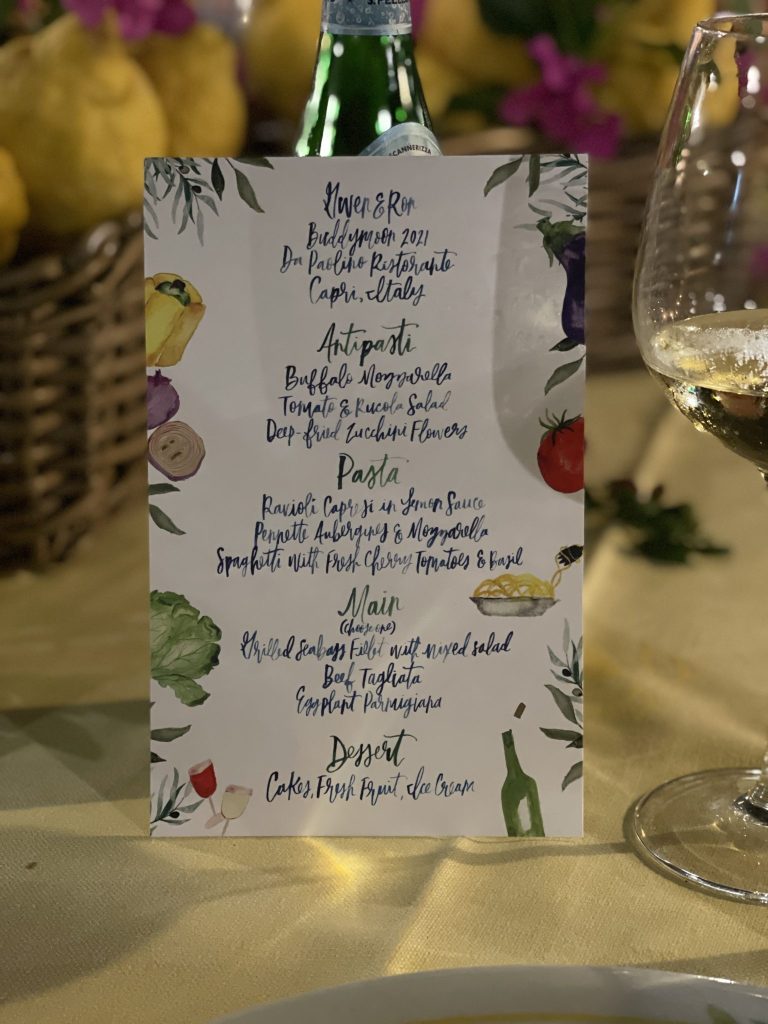 S.PELLE
SCANNERIZZA
Gwen & Ron
Buddymoon 2021
Da Paolino Ristorante
Capri, Italy
Antipasti
Buffalo Mozzarella
Tomato & Rucola Salad
Deep-fried Zucchini Flowers
Pasta
Ravioli Capresi in Lemon Sauce
Pennette Aubergines & Mozzarella
Spaghetti with Fresh Cherry Tomatoes & Basil
Main
(choose one)
Grilled Seabass Fillet with mixed salad
Beef Tagliata
Eggplant Parmigiana
Dessert
Cakes, Fresh Fruit, Ice Cream